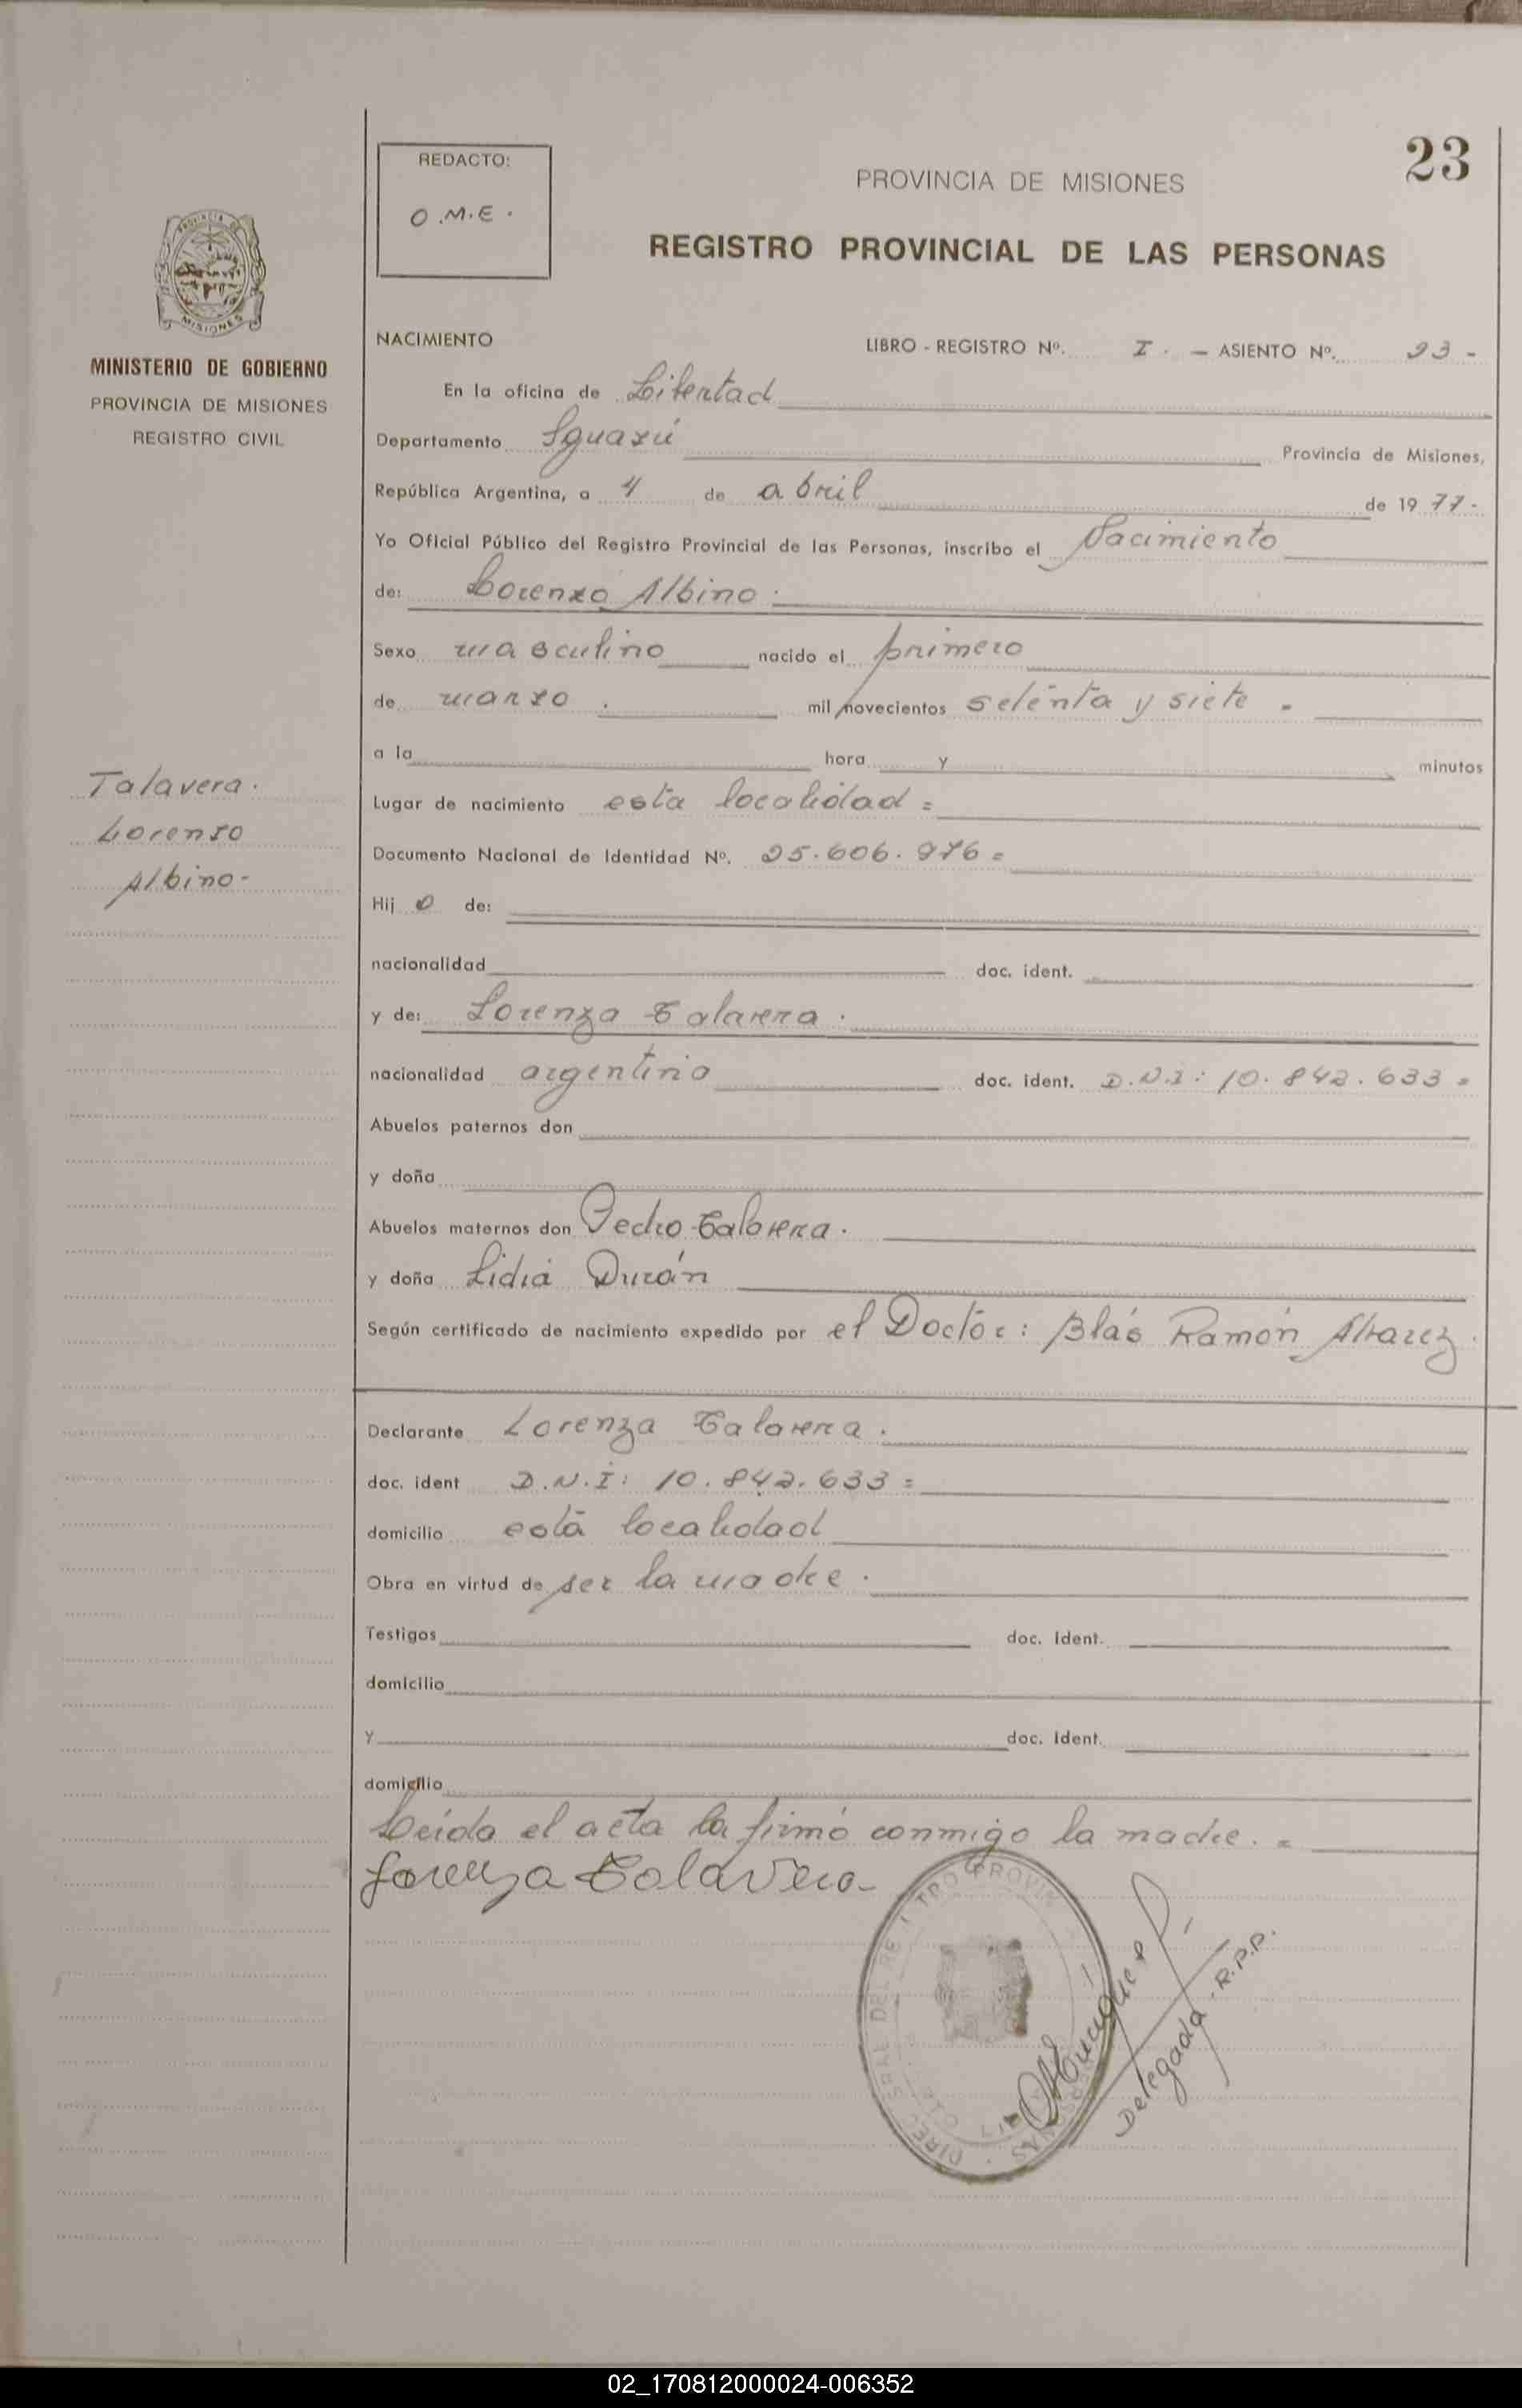 23
REDACTO:
O.M.E.
PROVINCIA DE MISIONES
REGISTRO PROVINCIAL DE LAS PERSONAS
MISIONES
MINISTERIO DE GOBIERNO
PROVINCIA DE MISIONES
REGISTRO CIVIL
NACIMIENTO LIBRO - REGISTRO Nº. I. - ASIENTO Nº. 23 -
En la oficina de Libertad
Departamento Iguazú Provincia de Misiones,
República Argentina, a 4 de abril de 1977.-
Yo Oficial Público del Registro Provincial de las Personas, inscribo el Nacimiento
de: Lorenzo Albino.
Sexo masculino nacido el primero
de marzo. mil novecientos setenta y siete -
a la hora y minutos
Talavera.
Lorenzo
Albino-
Lugar de nacimiento esta localidad =
Documento Nacional de Identidad Nº. 25.606.976 =
Hij o de:
nacionalidad doc. ident.
y de: Lorenza Talavera.
nacionalidad argentina doc. ident. D.N.I: 10.842.633 =
Abuelos paternos don
y doña
Abuelos maternos don Pedro Talavera.
y doña Lidia Durán
Según certificado de nacimiento expedido por el Doctor: Blás Ramón Alvarez.
Declarante Lorenza Talavera.
doc. ident D.N.I: 10.842.633 =
domicilio está localidad
Obra en virtud de ser la madre.
Testigos doc. Ident.
domicilio
y doc. Ident.
domicilio
Leida el acta la firmó conmigo la madre. =
Lorenza Talavera-
Delegada - R.P.P.
02_170812000024-006352